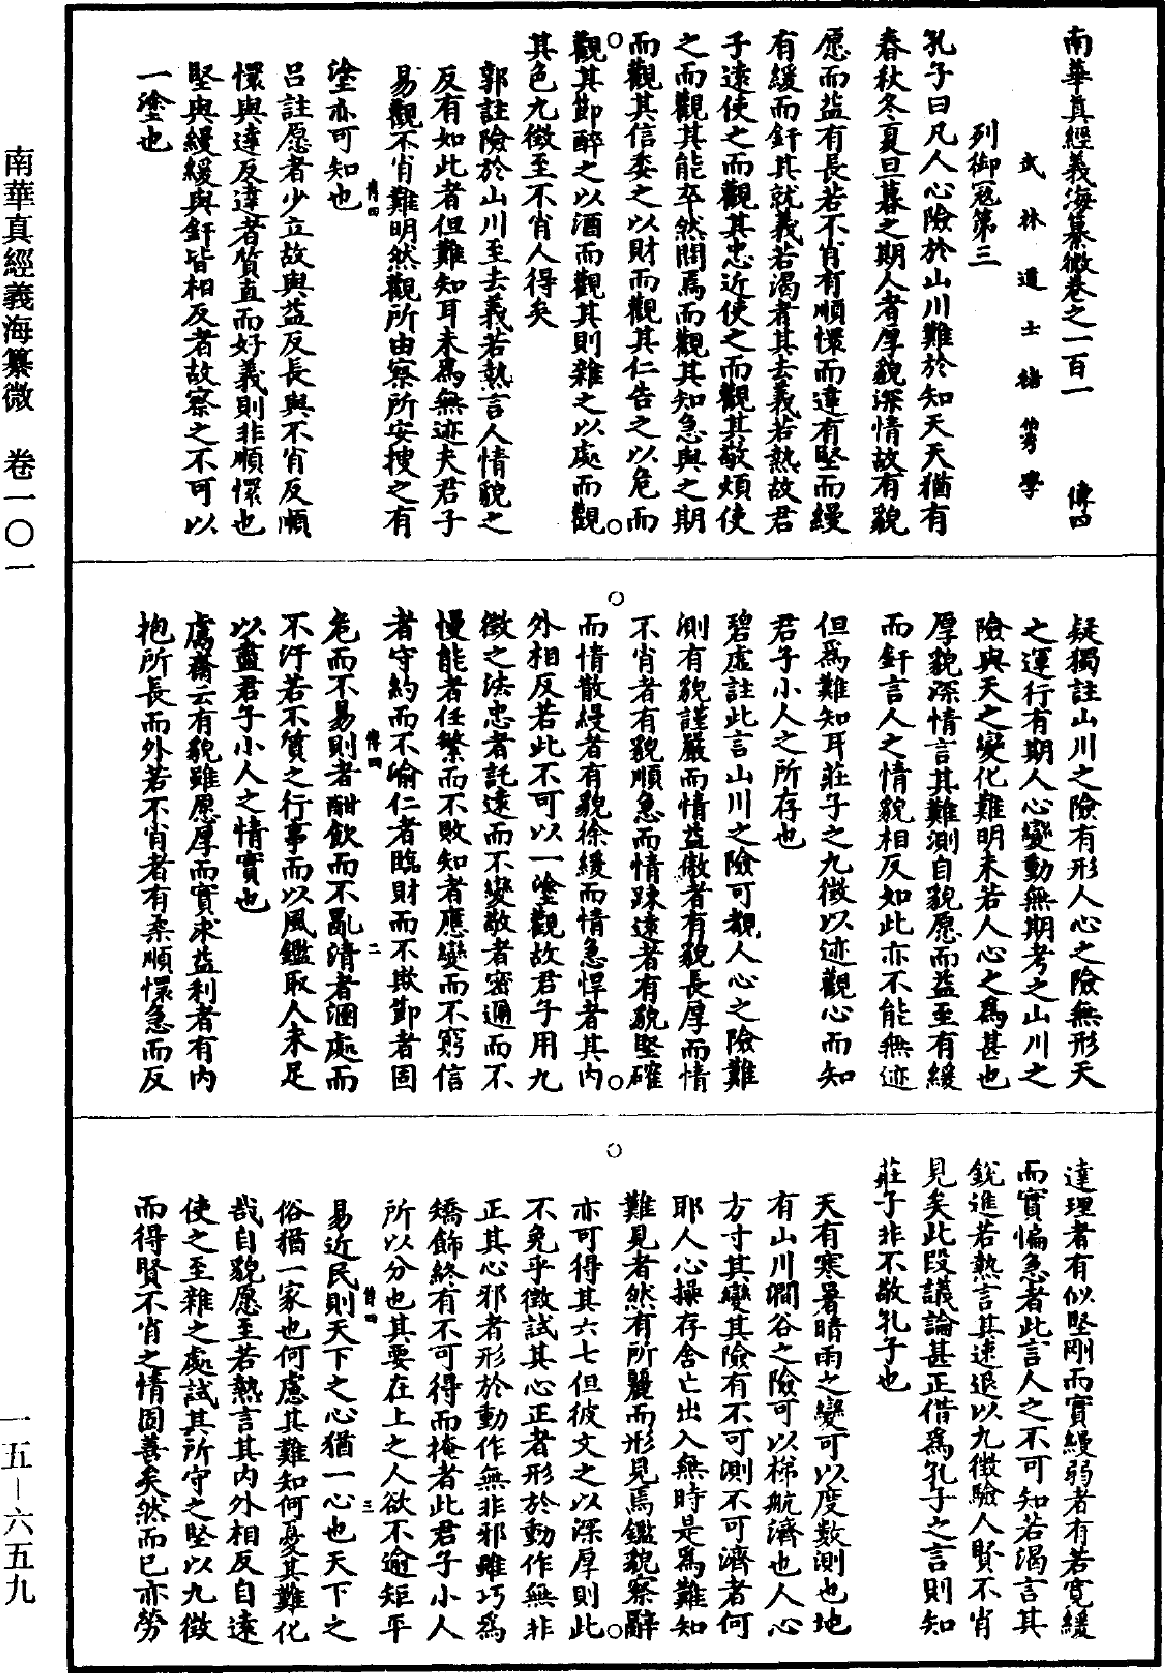 南華真經義海纂微卷之一百一　傳四
武林道士褚伯秀學
列御寇第三
孔子曰凡人心險於山川難於知天天猶有
春秋冬夏旦暮之期人者厚貌深情故有貌
愿而益有長若不肖有順懁而達有堅而縵
有緩而釬其就義若渴者其去義若熱故君
子遠使之而觀其忠近使之而觀其敬煩使
之而觀其能卒然問焉而觀其知急與之期
而觀其信委之以財而觀其仁告之以危而
觀其節醉之以酒而觀其則雜之以處而觀
其色九徵至不肖人得矣
郭註險於山川至去義若熱言人情貌之
反有如此者但難知耳未為無迹夫君子
易觀不肖難明然觀所由察所安搜之有
塗亦可知也
呂註愿者少立故與益反長與不肖反順
懁與達反達者質直而好義則非順懁也
堅與縵緩與釬皆相反者故察之不可以
一塗也
疑獨註山川之險有形人心之險無形天
之運行有期人心變動無期考之山川之
險與天之變化難明未若人心之為甚也
厚貌深情言其難測自貌愿而益至有緩
而釬言人之情貌相反如此亦不能無迹
但為難知耳莊子之九徵以迹觀心而知
君子小人之所存也
碧虛註此言山川之險可觀人心之險難
測有貌謹嚴而情益傲者有貌長厚而情
不肖者有貌順急而情踈達者有貌堅確
而情散縵者有貌徐緩而情急悍者其內
外相反若此不可以一塗觀故君子用九
徵之法忠者託遠而不變敬者密邇而不
慢能者任繁而不敗知者應變而不窮信
者守約而不渝仁者臨財而不欺節者固
危而不易則者酣飲而不亂清者溷處而
不汙若不質之行事而以風鑑取人未足
以盡君子小人之情實也
鬳齋云有貌雖愿厚而實求益利者有內
抱所長而外若不肖者有柔順懁急而反
達理者有似堅剛而實縵弱者有若寬緩
而實褊急者此言人之不可知若渴言其
銳進若熱言其速退以九徵驗人賢不肖
見矣此段議論甚正借為孔子之言則知
莊子非不敬孔子也
天有寒暑晴雨之變可以度數測也地
有山川澗谷之險可以梯航濟也人心
方寸其變其險有不可測不可濟者何
耶人心操存舍亡出入無時是為難知
難見者然有所麗而形見焉鑑貌察辭
亦可得其六七但彼文之以深厚則此
不免乎徵試其心正者形於動作無非
正其心邪者形於動作無非邪雖巧為
矯飾終有不可得而掩者此君子小人
所以分也其要在上之人欲不逾矩平
易近民則天下之心猶一心也天下之
俗猶一家也何慮其難知何憂其難化
哉自貌愿至若熱言其內外相反自遠
使之至雜之處試其所守之堅以九徵
而得賢不肖之情固善矣然而已亦勞
南華真經義海纂微　卷一〇一
一五－六五九